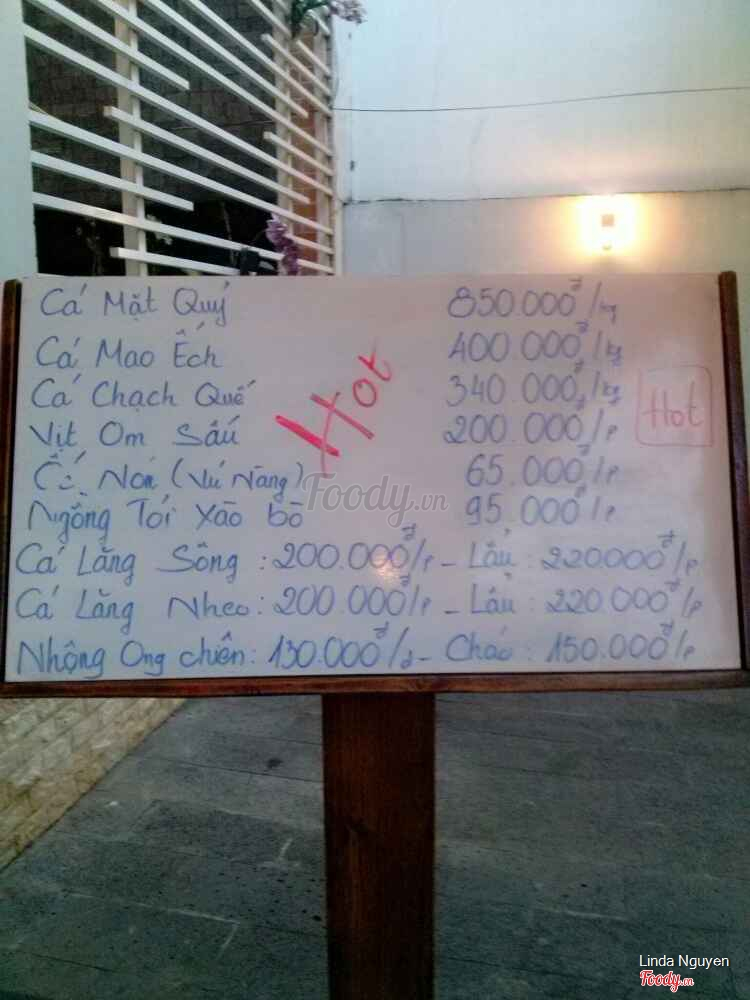 Cá Mặt Quỷ 850.000đ/kg
Cá Mao Ếch 400.000đ/kg
Cá Chạch Quế 340.000đ/kg
Vịt Om Sấu 200.000đ/P
Hot
Hot
Ốc Nón (Vú Nàng) 65.000đ/P
Ngồng Tỏi Xào bò 95.000đ/P
Cá Lăng Sông : 200.000đ/P - Lẩu : 220000đ/P
Cá Lăng Nheo : 200.000đ/P - Lẩu : 220.000đ/P
Nhộng Ong chiên : 130.000đ/d - Cháo : 150.000đ/P
Foody.vn
Linda Nguyen
Foody.vn